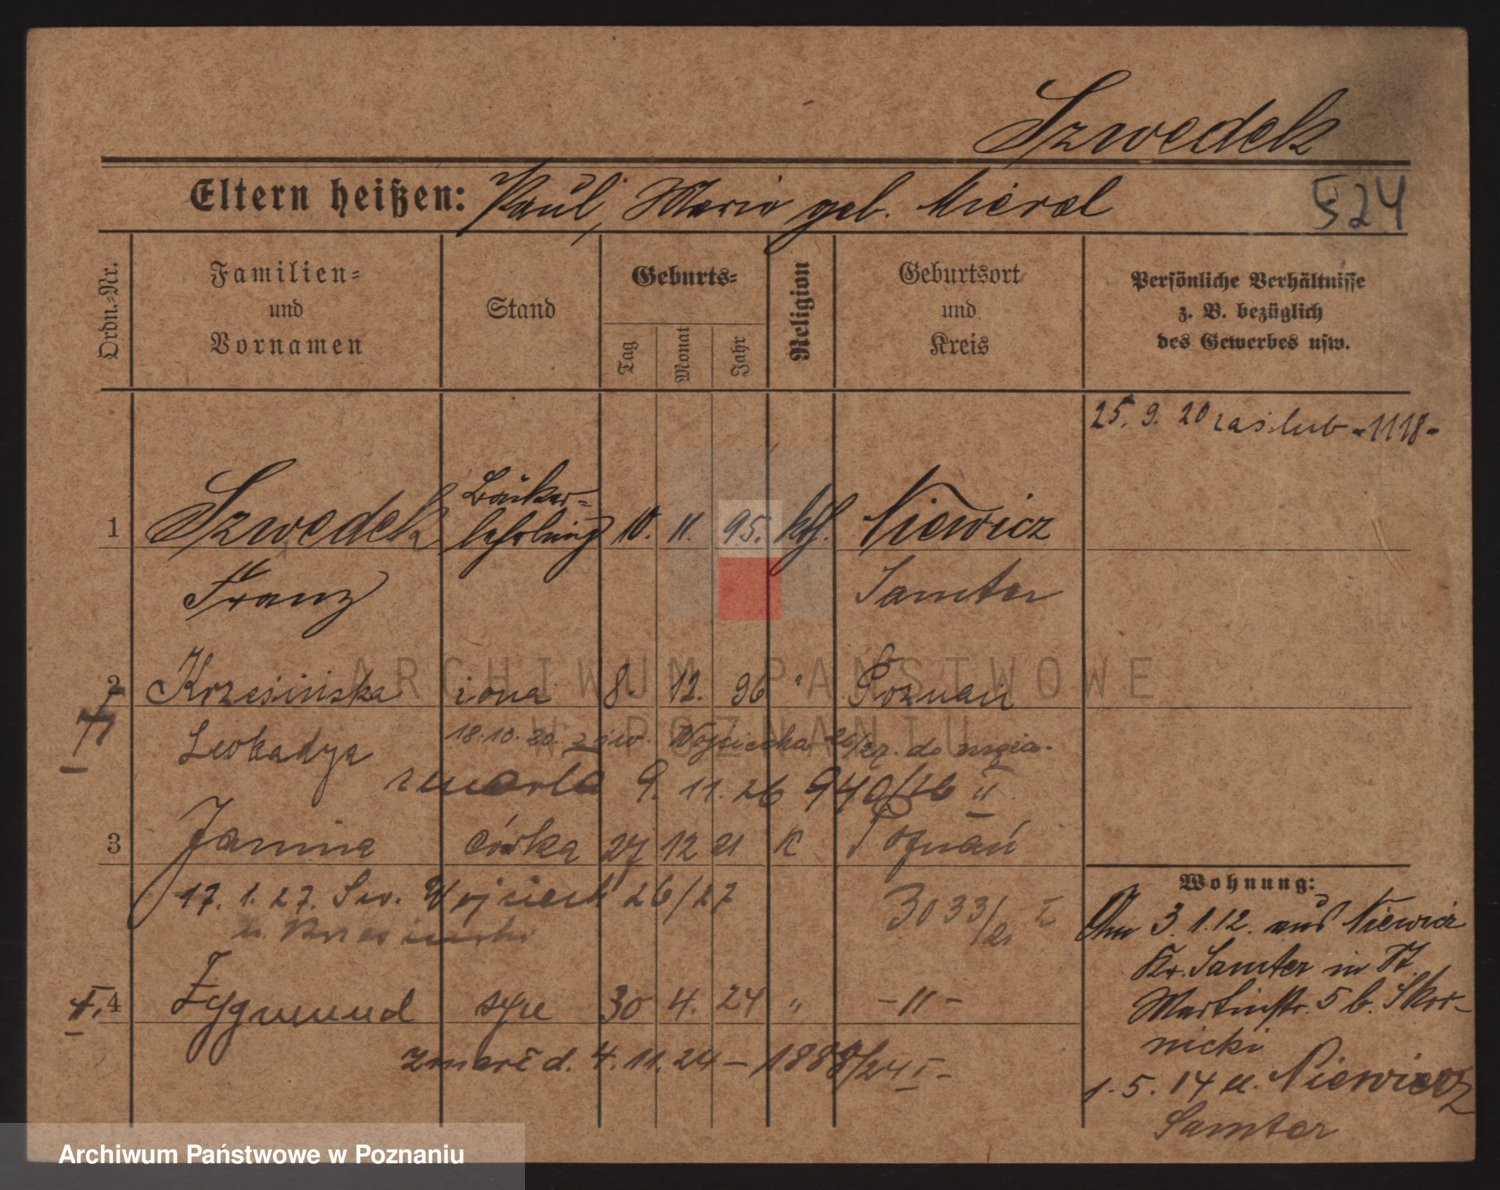 Szwedek
Eltern heißen: Paul, Maria geb. Mierel
524
Ordn.-Nr.
Familien-
und
Vornamen
Stand
Geburts-
Tag
Monat
Jahr
Religion
Geburtsort
und
Kreis
Persönliche Verhältnisse
z. B. bezüglich
des Gewerbes usw.
25. 9. 20 zaślub -1118-
1 Szwedek Bäcker-
lehrling 10. 11. 95. kth. Niewicz
Franz Samter
2 Krzesińska żona 8. 12. 96 " Poznań
Leokadya 18.10.20 św. Wojciecha
zmarła 9. 11. 26 940/26 II
3 Janina córka 27 12 21 k Poznań
17. 1. 27. Św. Wojciech 26/27 3033/21 I
u. Krzesińska
II. 4 Zygmund syn 30 4. 24 " -11-
zmarł d. 4.11.24 - 1888/24 I -
Wohnung:
Am 3.1.12. aus Niewicz
Kr. Samter in St.
Martinstr. 5 b. Skor-
nicki
1.5.14 n. Niewierz
Samter
ARCHIWUM PAŃSTWOWE
W POZNANIU
Archiwum Państwowe w Poznaniu